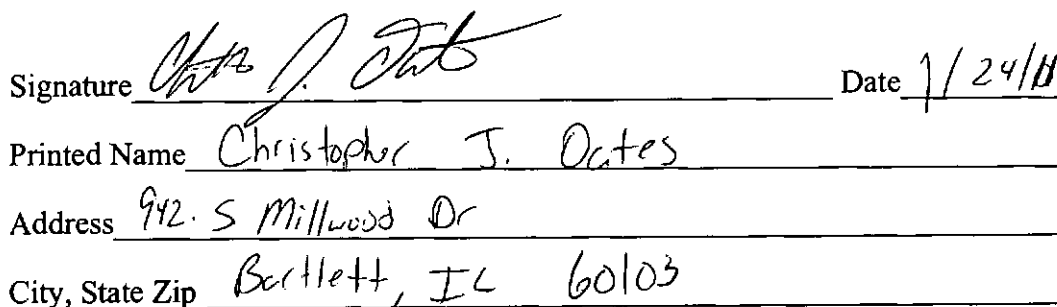 Signature Date 1/24/11
Printed Name Christopher J. Oates
Address 942. S Millwood Dr
City, State Zip Bartlett, IL 60103